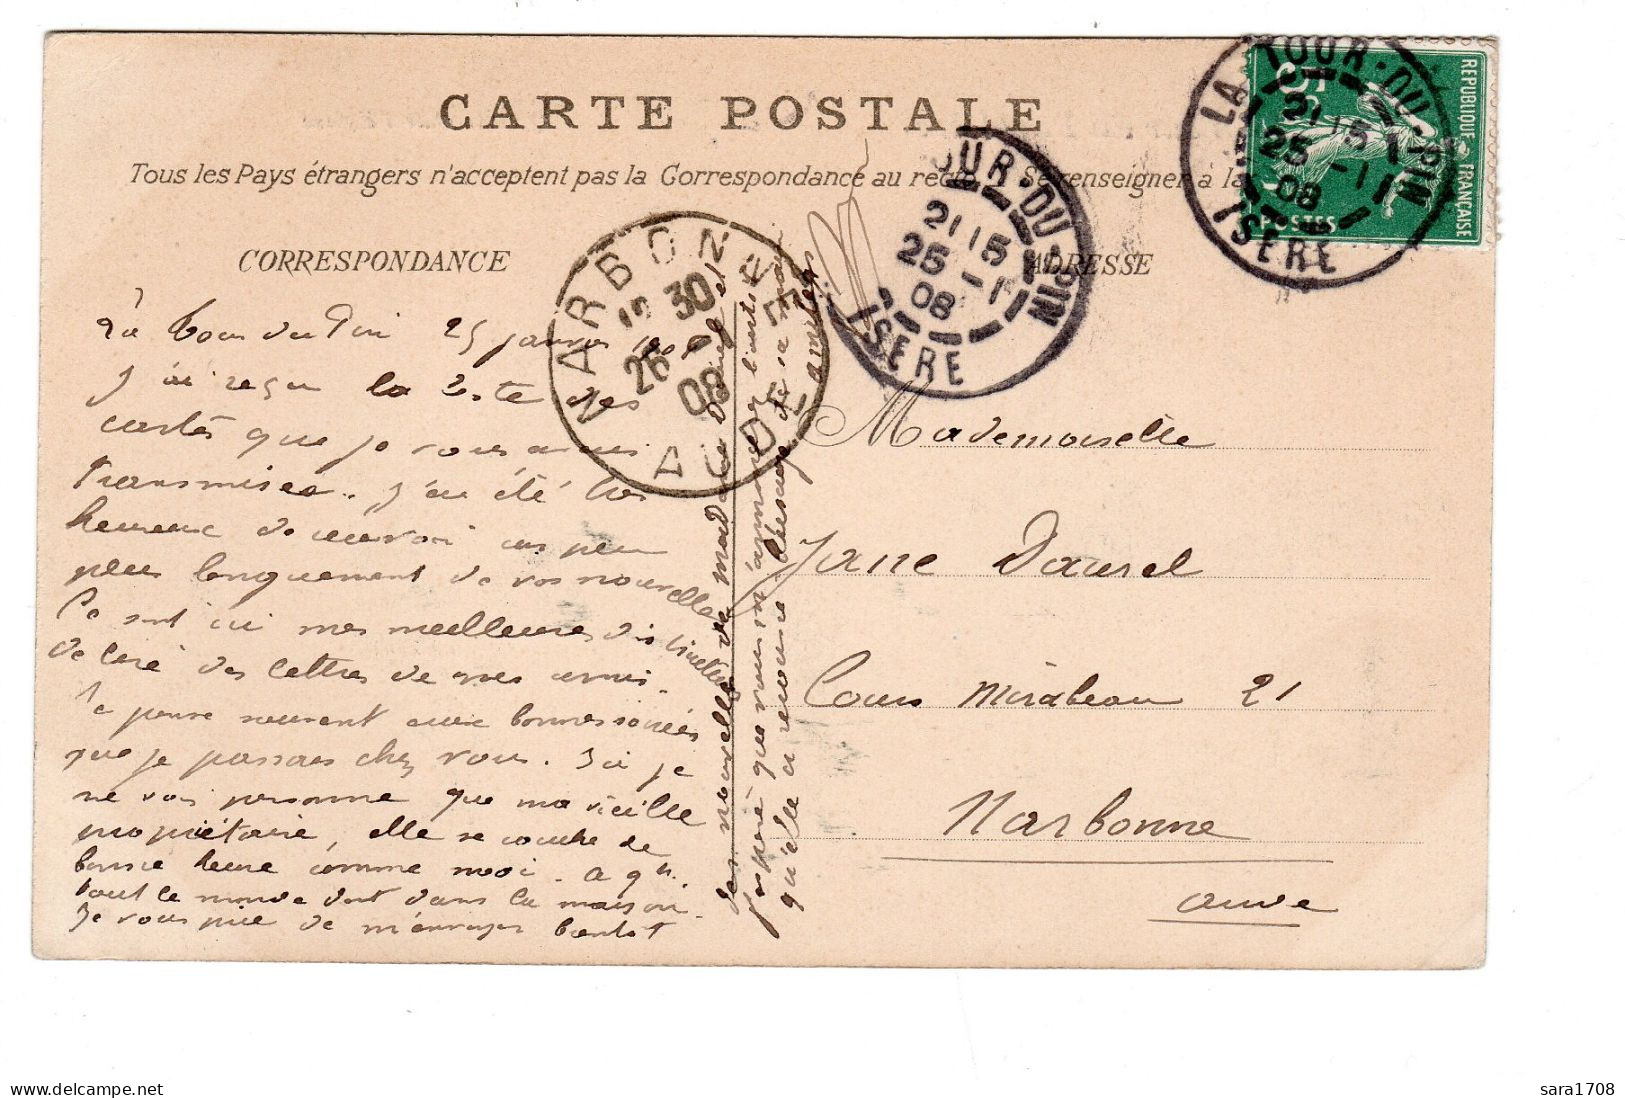 CARTE POSTALE
Tous les Pays étrangers n'acceptent pas la Correspondance au recto. Se renseigner à la
CORRESPONDANCE
ADRESSE
REPUBLIQUE FRANÇAISE
5
POSTES
LA TOUR-DU-PIN
21 15
25 -1
08
ISERE
OUR-DU-PIN
21 15
25 -1
08
ISERE
NARBONNE
30
26 -1
08
AUDE
La Tour du Pin 25 janvier 1908
J'ai reçu la liste des
cartes que je vous avais
transmises. J'ai été très
heureux de recevoir un peu
plus longuement de vos nouvelles
Ce sont ici mes meilleures distractions
de lire des lettres de mes amis.
Je pense souvent aux bonnes soirées
que je passais chez vous. Ici je
ne vois personne que ma vieille
propriétaire, elle se couche de
bonne heure comme moi. A 9h
tout le monde dort dans la maison.
Je vous prie de m'envoyer bientôt
des nouvelles de Madame Daurel et
j'espère que vous m'apprendrez
qu'elle a renoncé
Mademoiselle
Jane Daurel
Cours Mirabeau 21
Narbonne
Aude
delcampe.net
sara1708